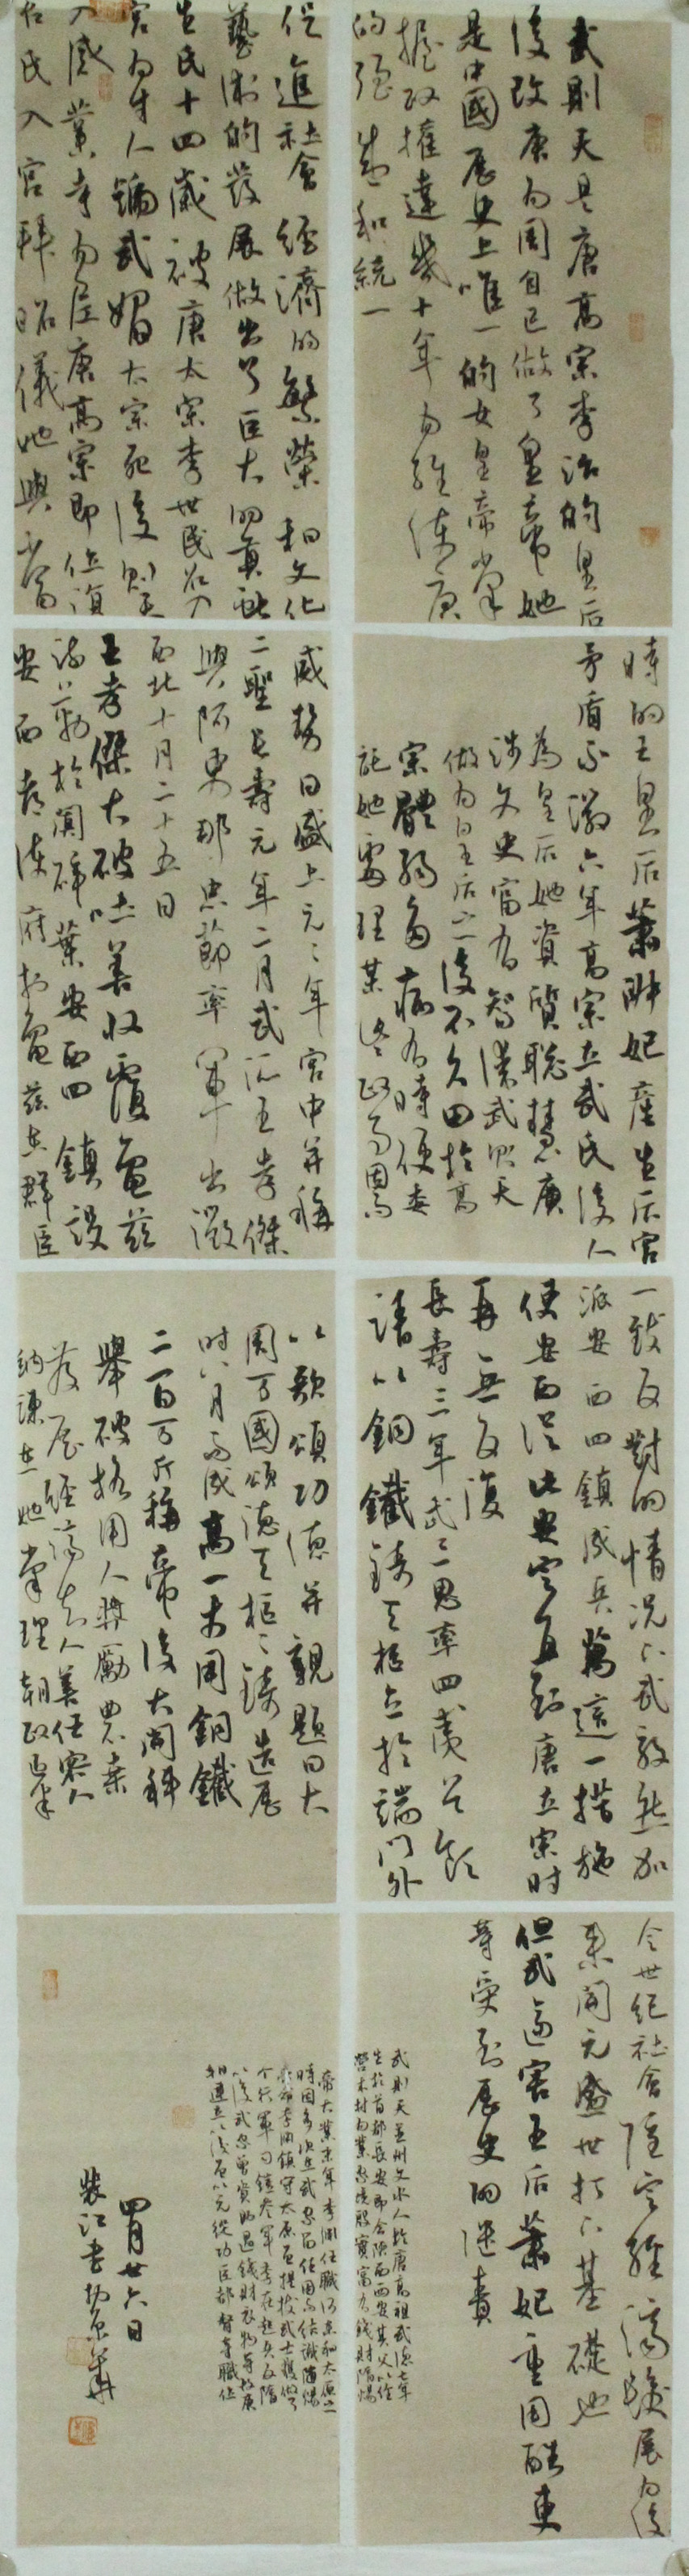 武則天是唐高宗李治的皇后
後改唐為周自己做了皇帝她
是中國歷史上唯一的女皇帝掌
握政權達幾十年為維護唐
的強盛和統一
促進社會經濟的繁榮和文化
藝術的發展做出了巨大的貢獻
武氏十四歲被唐太宗李世民召入
宮為才人賜武媚太宗死後則天
入感業寺為尼唐高宗即位復
召武氏入宮拜昭儀她與當
時的王皇后蕭淑妃產生后宮
矛盾永徽六年高宗立武氏後人
為皇后她資質聰慧廣
涉文史富有智謀武則天
做為皇后之後不久由於高
宗體弱多病有時便委
託她處理某些政局因為
威勢日盛上元二年宮中并稱
二聖長壽元年二月武派王孝傑
與阿史那忠節率軍出徵
西北十月二十五日
王孝傑大破吐蕃收復龜茲
疏勒於闐碎葉安西四鎮設
安西都護府於龜茲在群臣
一致反對的情況下武毅然加
派安西四鎮戍兵萬這一措施
使安西從此安定直到唐玄宗时
再無反復
長壽三年武三思率四夷酋領
請以銅鐵鑄天樞立於端門外
以歌頌功德并親題曰大
周万國頌德天樞天樞鑄造歷
时八月而成高一丈用銅鐵
二百万斤稱帝後大開科
舉破格用人獎勵農桒
發展經濟知人善任容人
納諫在她掌理朝政近半
个世紀社會隱定經濟發展為後
來開元盛世打下基礎她
但武則害王后蕭妃重用酷吏
等受到歷史的譴責
武則天並州文水人於唐高祖武德七年
生於首都長安即今陝西西安其父以經
營木材為業家境殷實富有錢財隋煬
帝大業末年李淵任職河東和太原之
時因多次在武家留住因而結識隋煬
帝命李淵鎮守太原後提拔武士彠做了
个行軍司鎧參軍李在起兵反隋
以後武家曾資助過錢財衣物等故唐
四月廿六日